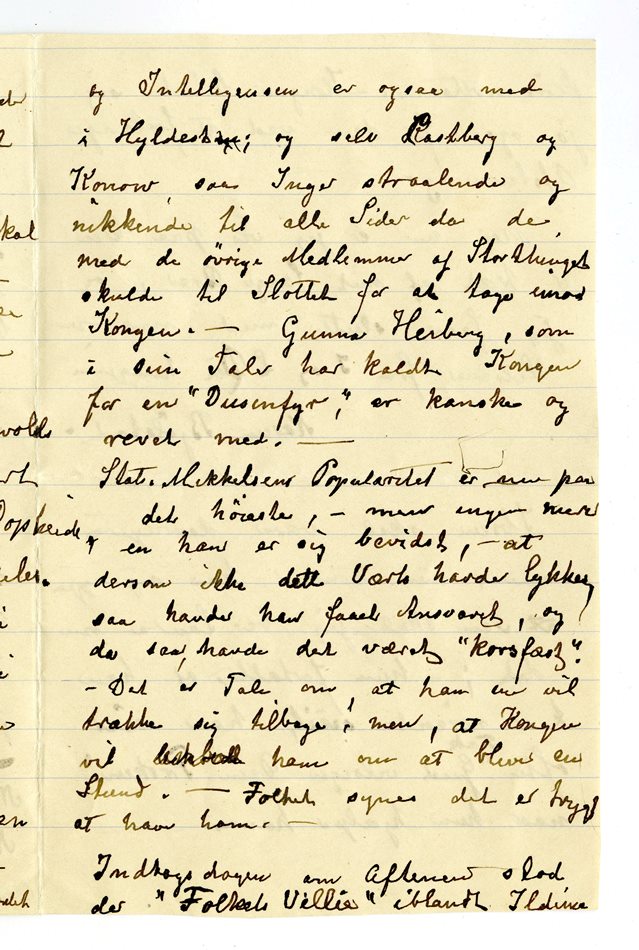 og Intelligensen er ogsaa med
i Hyldesten; og selv Castberg og
Konow saa Inger straalende og
nikkende til alle Sider da de
med de övrige Medlemmer af Storthinget
skulde til Slottet for at tage imod
Kongen. — Gunnar Heiberg, som
i sin Tale har kaldt Kongen
for en "Dusinfyr," er kanske og
revet med. —
Stat. Mikkelsens Popularitet er nu paa
det höieste, – men ingen mere
en han er sig bevidst, – at
dersom ikke dette Værk havde lykkes,
saa havde han faaet Ansvaret, og
da saa, havde det været "korsfæst".
– Det er Tale om, at han nu vil
trække sig tilbage; men, at Kongen
vil ham om at blive en
Stund. — Folket synes det er trygt
at have ham. —
Indtogsdagen om Aftenen stod
der "Folkets Villie" iblandt Ildene
kal
volds
Opheide
eles.